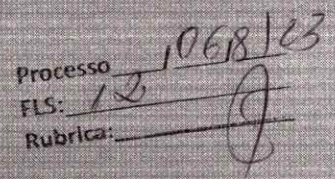 Processo 1068/23
FLS: 12
Rubrica: